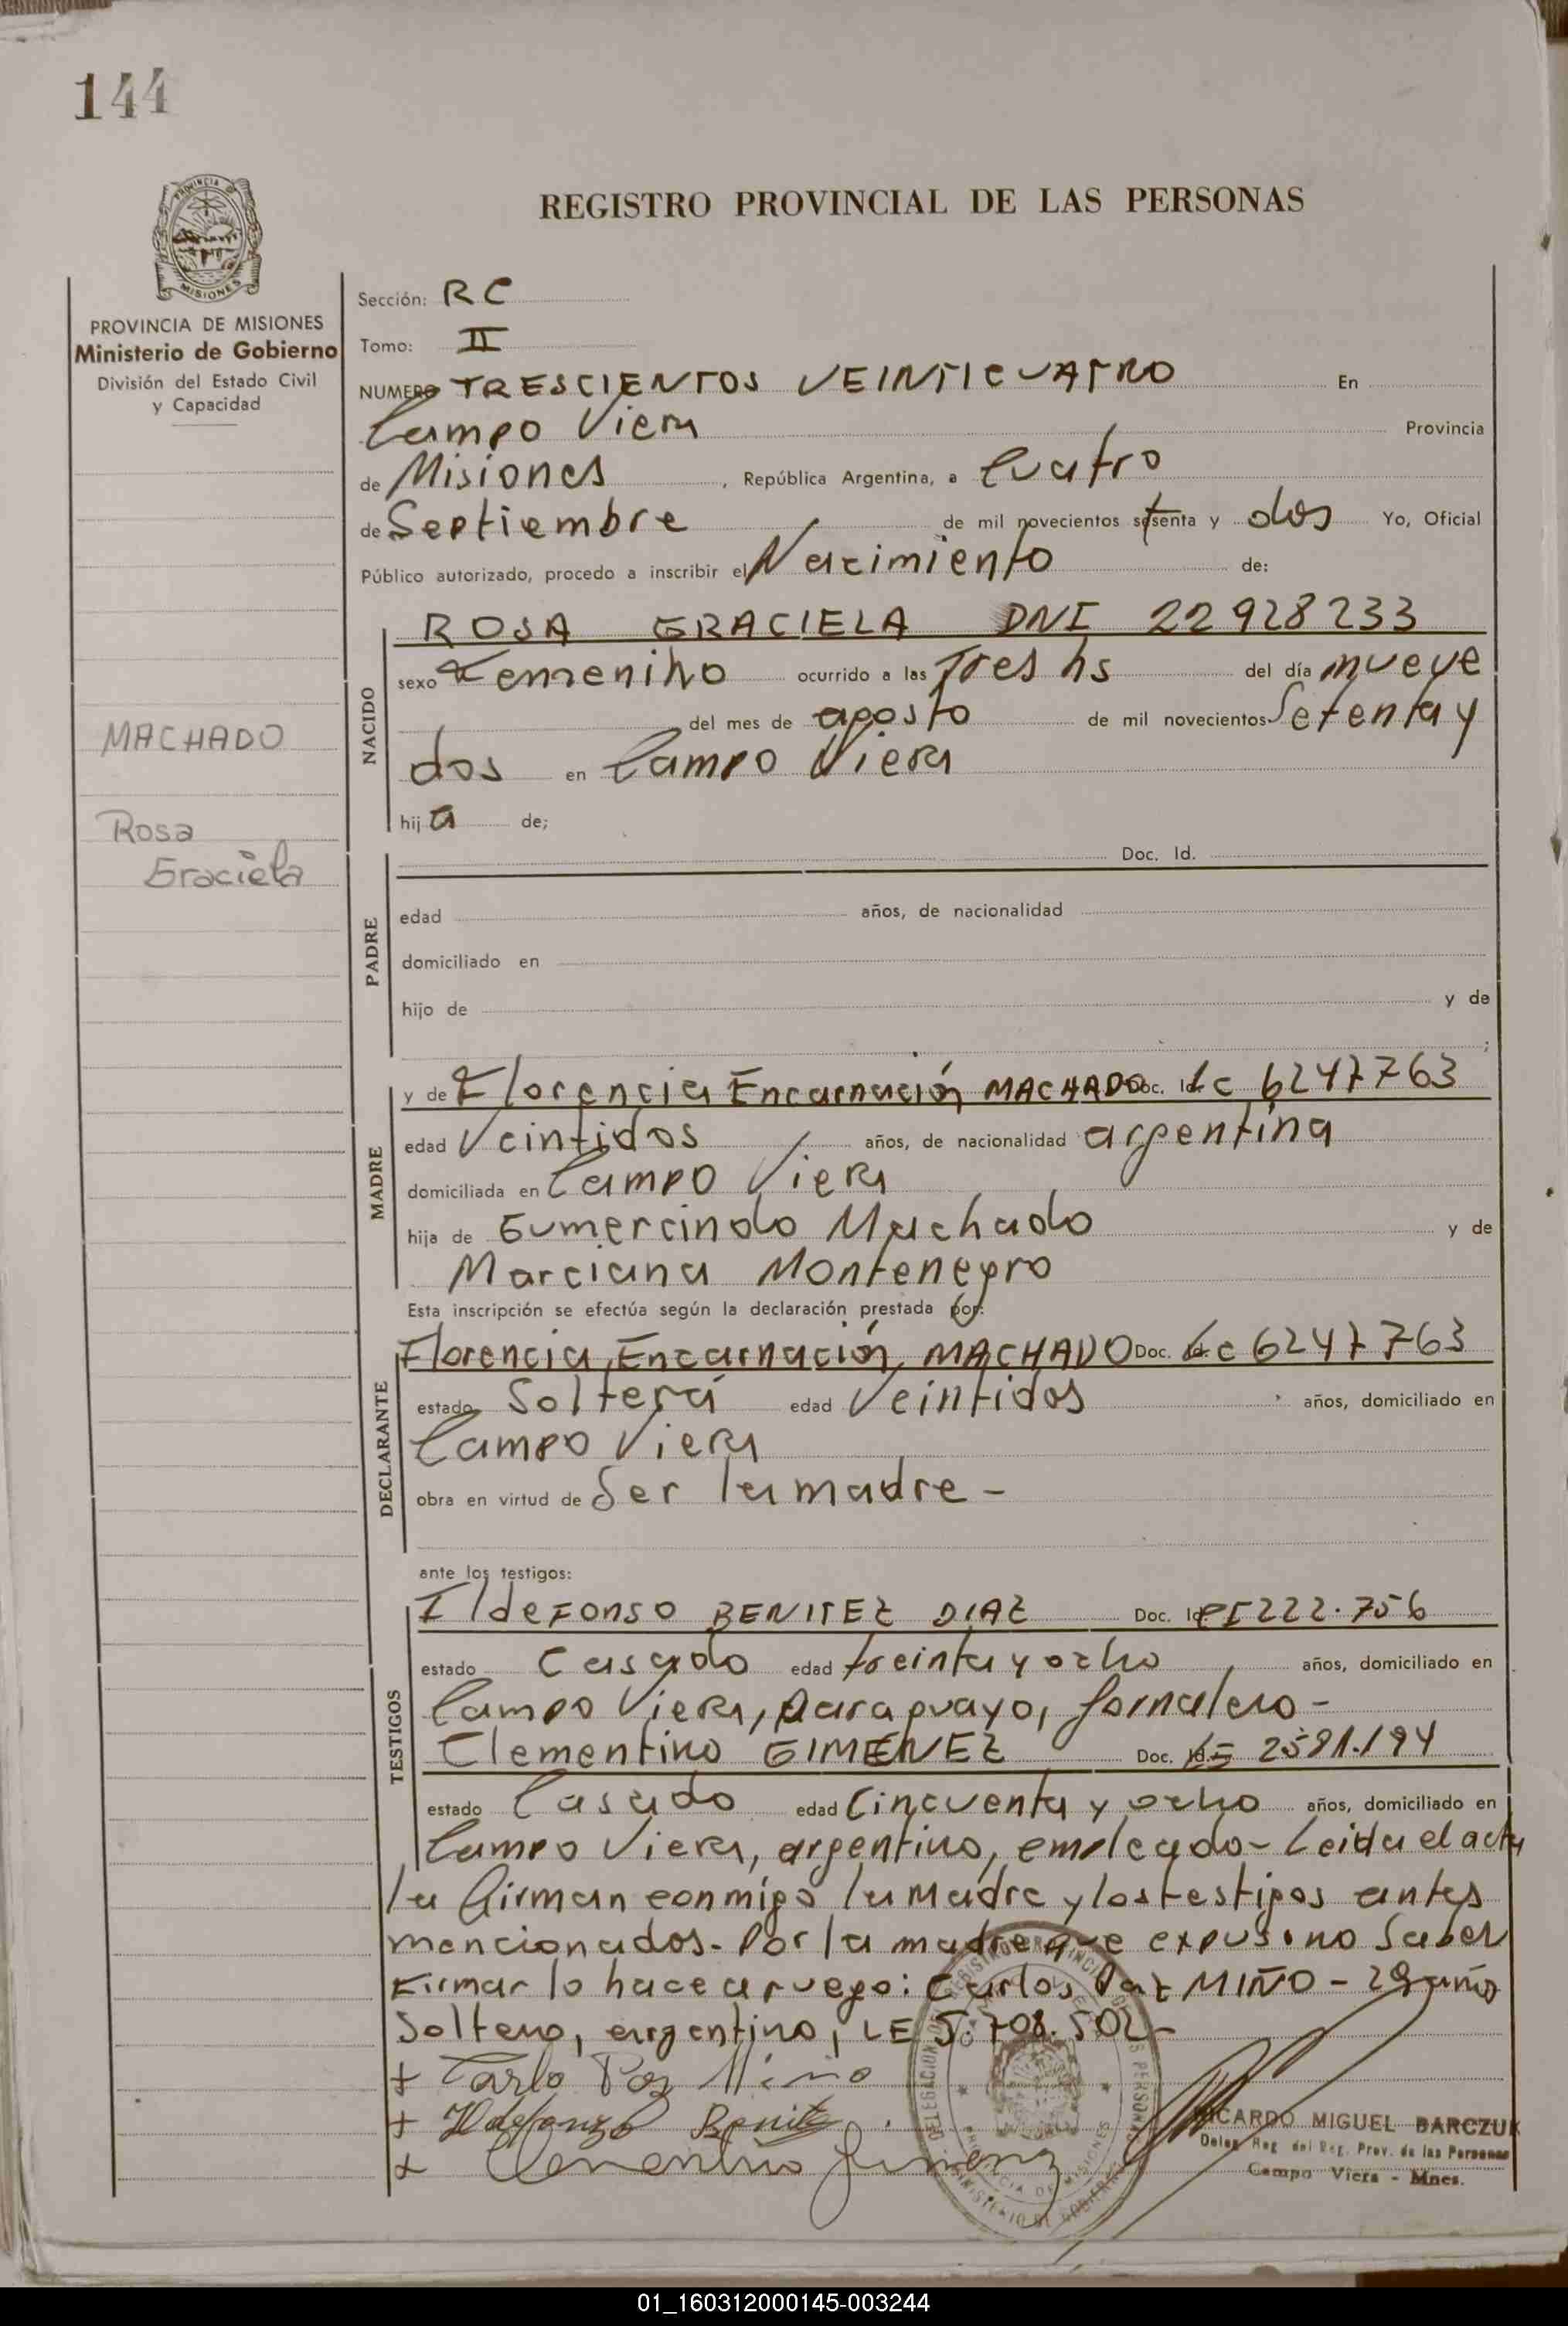 144
REGISTRO PROVINCIAL DE LAS PERSONAS
PROVINCIA DE MISIONES
Ministerio de Gobierno
División del Estado Civil
y Capacidad
MACHADO
Rosa
Graciela
Sección: RC
Tomo: II
NUMERO TRESCIENTOS VEINTICUATRO En
Campo Viera Provincia
de Misiones, República Argentina, a Cuatro
de Septiembre de mil novecientos setenta y dos Yo, Oficial
Público autorizado, procedo a inscribir el Nacimiento de:
NACIDO
ROSA GRACIELA DNI 22928233
sexo Femenino ocurrido a las Tres hs del día nueve
del mes de agosto de mil novecientos Setenta y
dos en Campo Viera
hija de;
PADRE
Doc. Id.
edad años, de nacionalidad
domiciliado en
hijo de y de
;
MADRE
y de Florencia Encarnación MACHADO Doc. Id. LC 6247763
edad Veintidos años, de nacionalidad argentina
domiciliada en Campo Viera
hija de Gumercindo Machado y de
Marciana Montenegro
Esta inscripción se efectúa según la declaración prestada por:
DECLARANTE
Florencia Encarnación MACHADO Doc. Id. LC 6247763
estado Soltera edad Veintidos años, domiciliado en
Campo Viera
obra en virtud de Ser la madre -
ante los testigos:
TESTIGOS
Ildefonso BENITEZ DIAZ Doc. Id. CI 222.756
estado Casado edad treinta y ocho años, domiciliado en
Campo Viera, Paraguayo, Jornalero -
Clementino GIMENEZ Doc. Id. LE 2581.194
estado Casado edad Cincuenta y ocho años, domiciliado en
Campo Viera, argentino, empleado - Leida el acta
la firman conmigo la madre y los testigos antes
mencionados. Por la madre que expuso no Saber
Firmar lo hace a ruego: Carlos Paz MIÑO - 29 años
Soltero, argentino, LE 5.708.502 -
+ Carlo Paz Miño
+ Ildefonzo Benitez
+ Clementino Jimenez
DELEGACION DEL REGISTRO PROVINCIAL DE LAS PERSONAS
CAMPO VIERA
PROVINCIA DE MISIONES
MINISTERIO DE GOBIERNO
RICARDO MIGUEL BARCZUK
Deleg. Reg. del Reg. Prov. de las Personas
Campo Viera - Mnes.
01_160312000145-003244